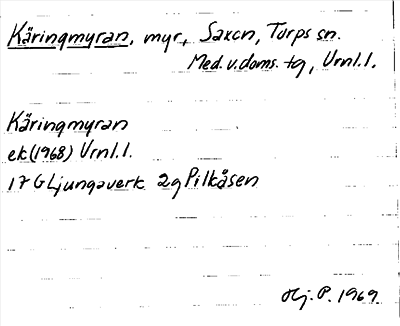 Käringmyran, myr, Saxen, Torps sn.
Med. v. doms. tg, Vrnl. l.
Käringmyran
ek (1968) Vrnl. l.
17G Ljungaverk 2g Pilkåsen
Hj. P. 1969